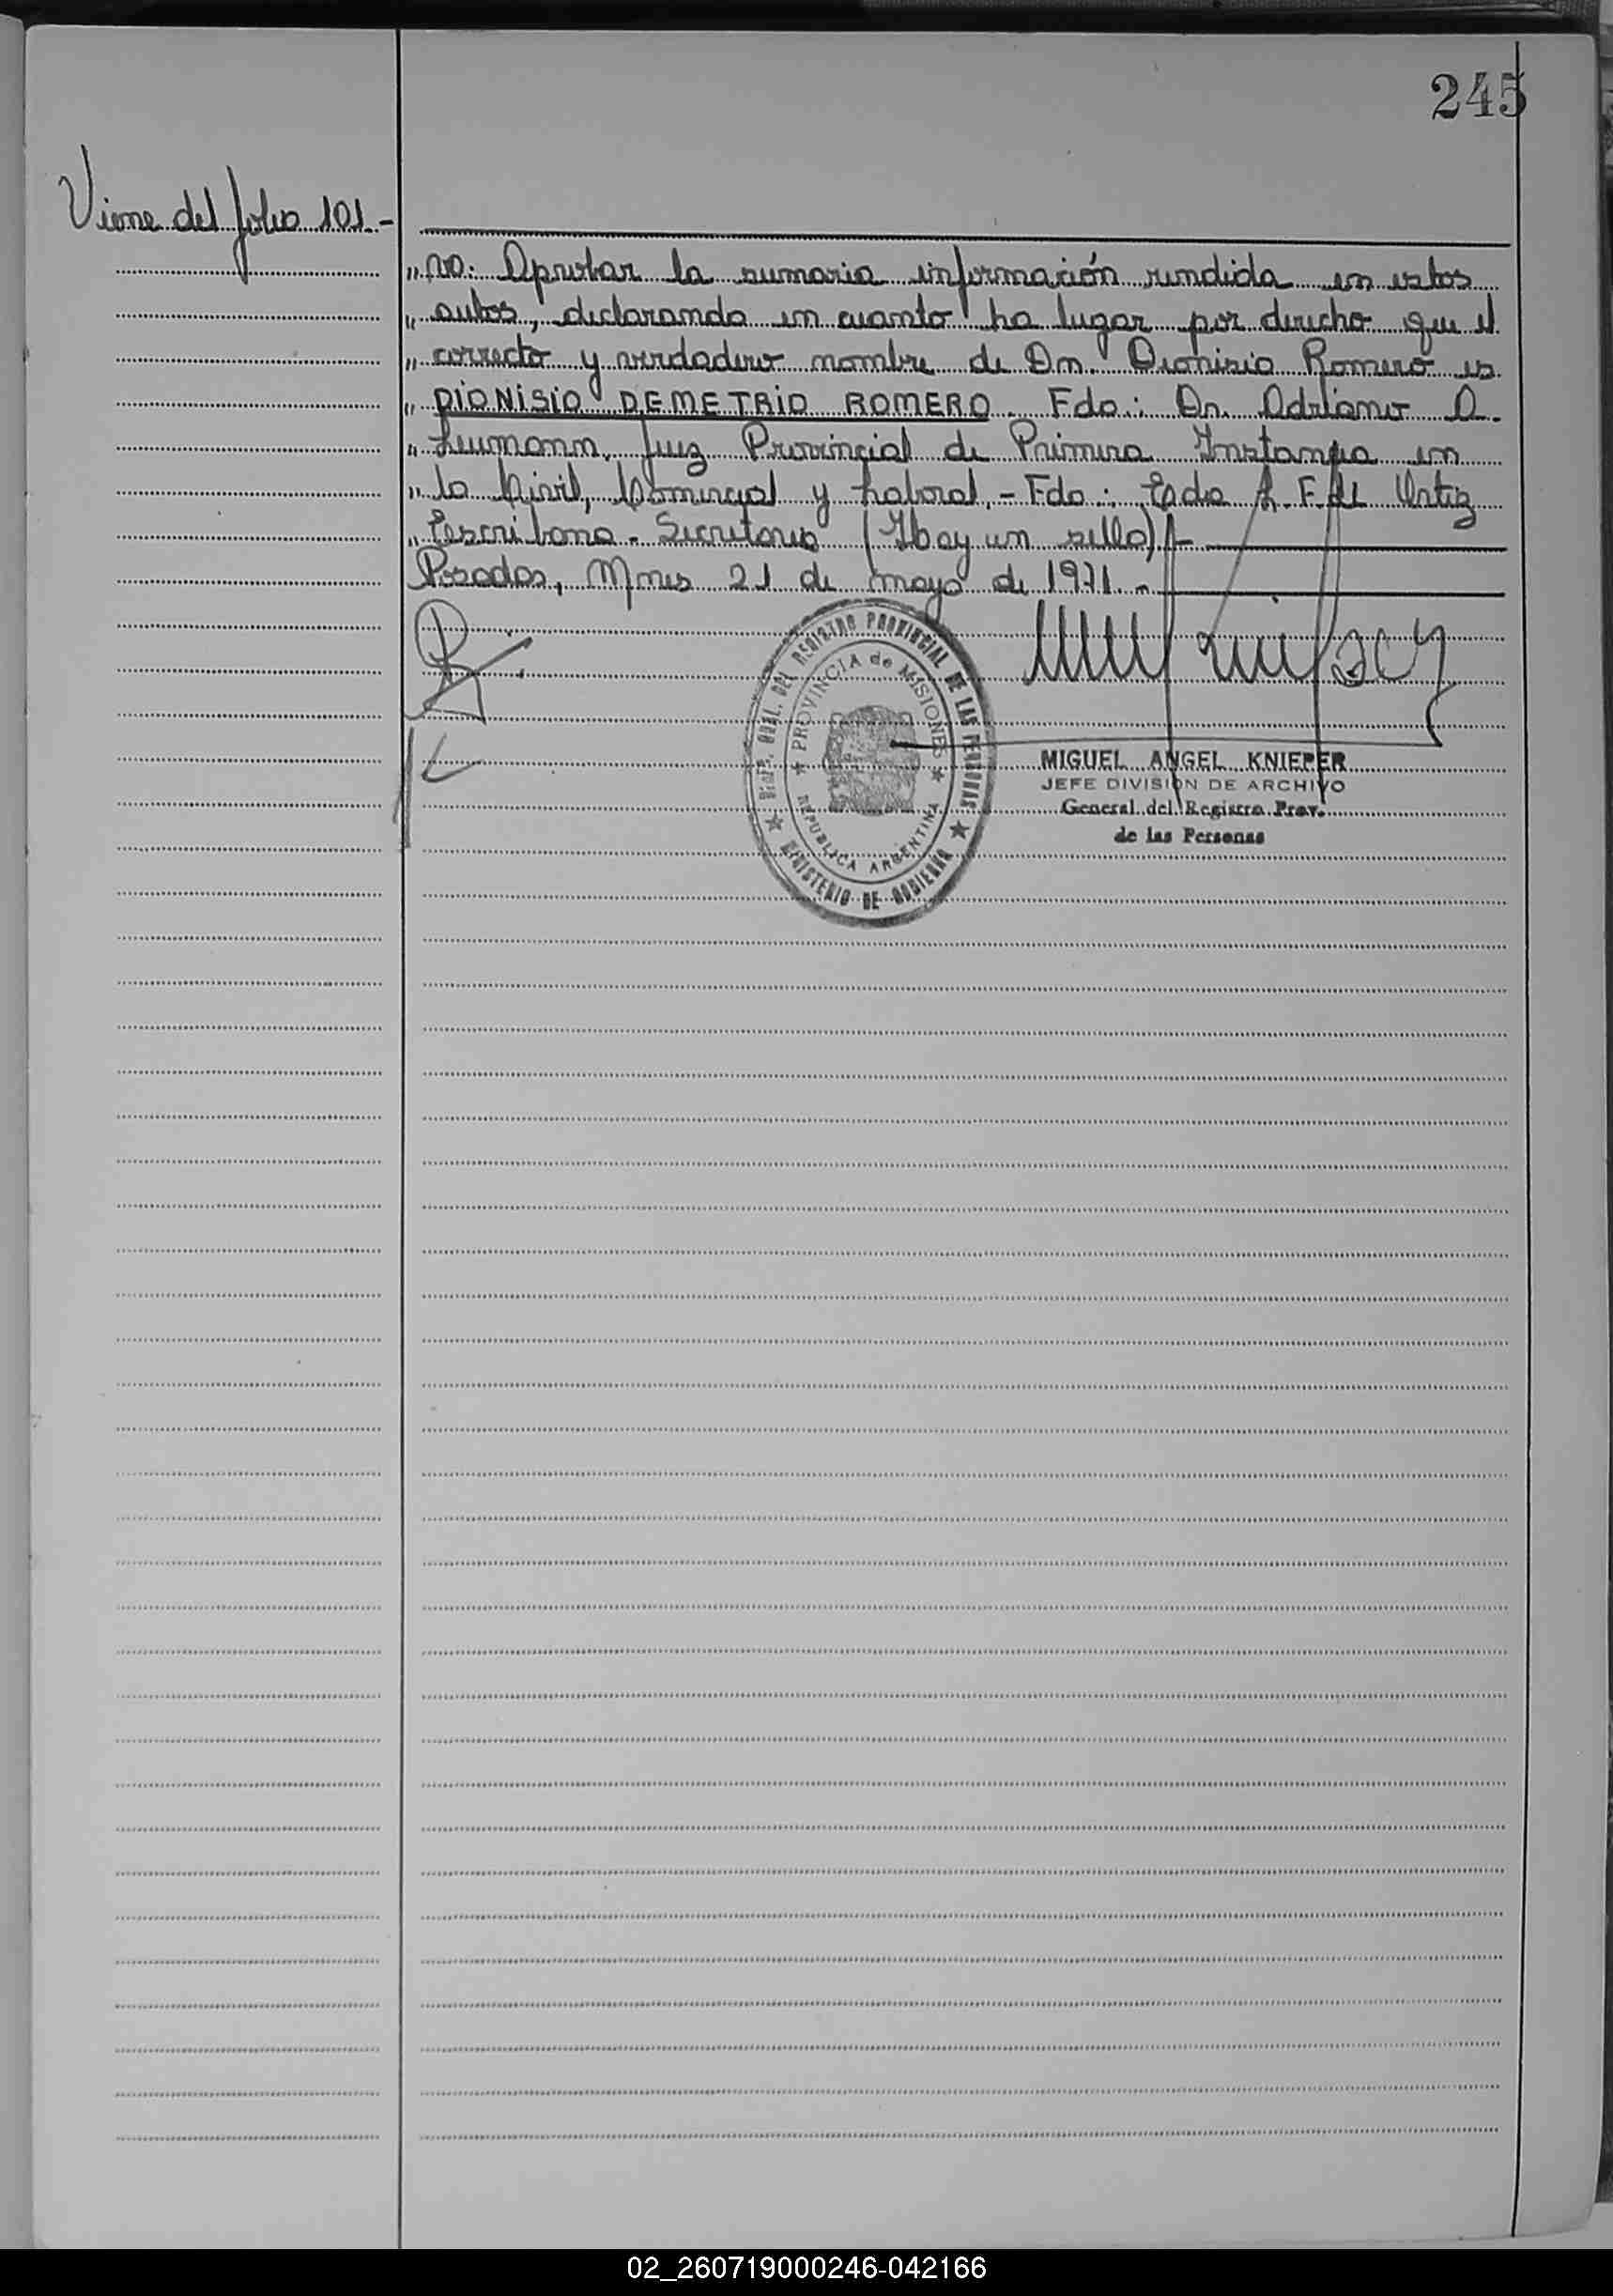 245
Viene del folio 101.-
" vo: Aprobar la sumaria información rendida en estos
" autos, declarando en cuanto ha lugar por derecho que el
" correcto y verdadero nombre de Dn. Dionisio Romero es
" DIONISIO DEMETRIO ROMERO. Fdo.: Dr. Adriano A.
" Leumann. Juez Provincial de Primera Instancia en
" lo Civil, Comercial y Laboral.- Fdo.: F. del Ortiz
" Escribana - Secretaria (Hay un sello)
Posadas, Mnes 21 de mayo de 1971.-
DEL REGISTRO PROVINCIAL DE LAS PERSONAS
PROVINCIA de MISIONES
REPUBLICA ARGENTINA
MINISTERIO DE GOBIERNO
MIGUEL ANGEL KNIEPER
JEFE DIVISIÓN DE ARCHIVO
General del Registro Prov.
de las Personas
02_260719000246-042166